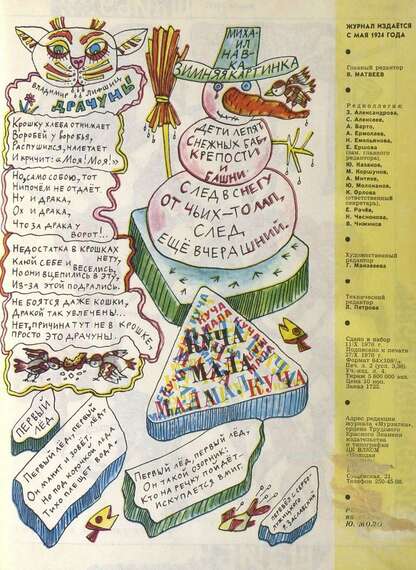 Владимир Лифшиц
ДРАЧУНЫ
Крошку хлеба отнимает
Воробей у воробья,
Распушился, налетает
И кричит: «Моя! Моя!»
Но, само собою, тот
Нипочём не отдаёт.
Ну и драка,
Ох и драка,
Что за драка у
ворот!..
Недостатка в крошках
нету,
Клюй себе и
веселись,
Но они вцепились в эту.
Из-за этой подрались.
Не боятся даже кошки,
Дракой так увлечены...
Нет, причина тут не в крошке,
Просто это драчуны.
МИХА-
ИЛ
НАВ-
КА
ЗИМНЯЯ КАРТИНКА
ДЕТИ ЛЕПЯТ
СНЕЖНЫХ БАБ,
КРЕПОСТИ
И
БАШНИ.
СЛЕД В СНЕГУ
ОТ ЧЬИХ-ТО ЛАП,
СЛЕД
ЕЩЁ ВЧЕРАШНИЙ.
КУЧА
МАЛА
МАЛА КУЧА
ПЕРВЫЙ
ЛЁД
Первый лёд, первый лёд,
Он манит и зовёт.
Но под корочкой льда
Тихо плещет вода.
Первый лёд, первый лёд,
Он такой озорник:
Кто на речку пойдёт,
Искупается вмиг.
Перевёл с сербо-
лужицкого
Р. Заславский
ЖУРНАЛ ИЗДАЁТСЯ
С МАЯ 1924 ГОДА
Главный редактор
В. МАТВЕЕВ
Редколлегия:
З. Александрова,
С. Алексеев,
А. Барто,
А. Ермолаев,
Н. Емельянова,
Е. Ершова
(зам. главного
редактора),
Ю. Казаков,
М. Коршунов,
А. Митяев,
Ю. Молоканов,
К. Орлова
(ответственный
секретарь),
Е. Рачёв,
Н. Чеснокова,
В. Чижиков
Художественный
редактор
Г. Макавеева
Технический
редактор
Л. Петрова
Сдано в набор
Подписано к печати
Печ. л. 2
Тираж 5 800 000 экз.
Цена 10 коп.
Адрес редакции
журнала «Мурзилка»,
ордена Трудового
Красного Знамени
издательства
и типографии
ЦК ВЛКСМ
«Молодая
Сущёвская, 21.